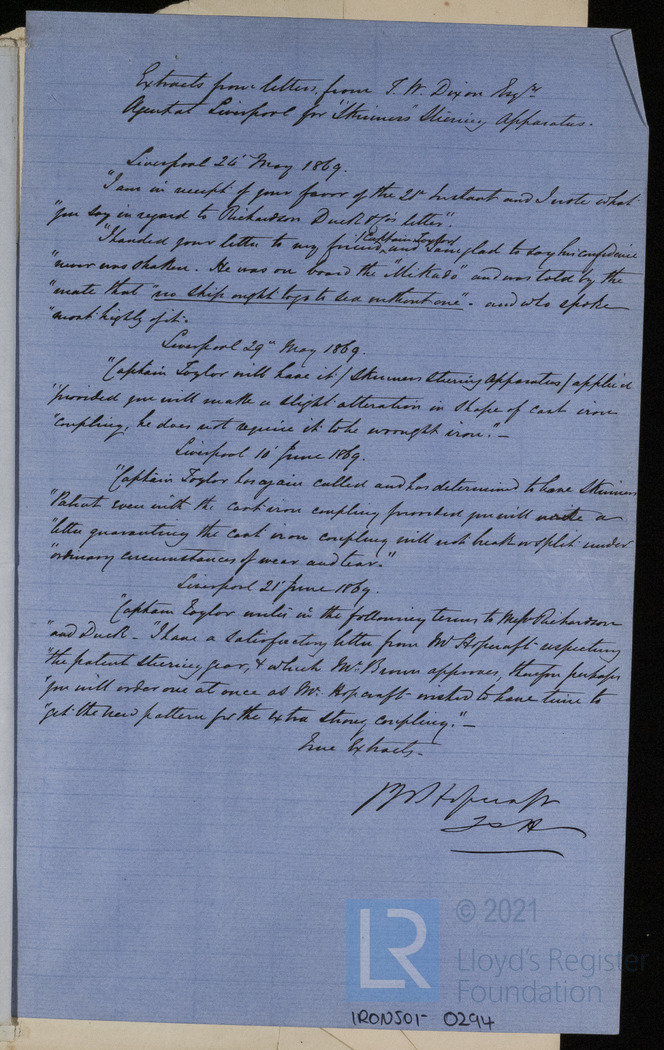 Extracts from letters, from T. W. Dixon Esqre
Agent at Liverpool for "Skinners" Steering Apparatus.
Liverpool 26 May 1869.
"I am in receipt of your favor of the 25 Instant and I note what
"you say in regard to Richardson Duck & Co's letter".
"I handed your letter to my friend, (Captain Taylor) and I am glad to say his confidence
"never was shaken. He was on board the "Mikado" and was told by the
"mate that "no ship ought to go to sea without one" - and who spoke
"most highly of it.
Liverpool 29th May 1869.
"Captain Taylor will have it (Skinners Steering Apparatus) applied
"provided you will make a slight alteration in shape of cast iron
"coupling, he does not require it to be wrought iron." -
Liverpool 10 June 1869.
"Captain Taylor has again called and has determined to have Skinners
"Patent even with the cast iron coupling provided you will write a
"letter guaranteeing the cast iron coupling will not break or split under
"ordinary circumstances of wear and tear."
Liverpool 21 June 1869.
"Captain Taylor writes in the following terms to Messrs Richardson
"and Duck - I have a satisfactory letter from Mr Hopcraft respecting
"the patent steering gear, & which Mr. Brown approves, therefore perhaps
"you will order one at once as Mr. Hopcraft wished to have time to
"get the new pattern for the extra strong coupling." -
True Extracts -
Hopcraft
© 2021
LR
Lloyd's Register
Foundation
IRON501- 0294